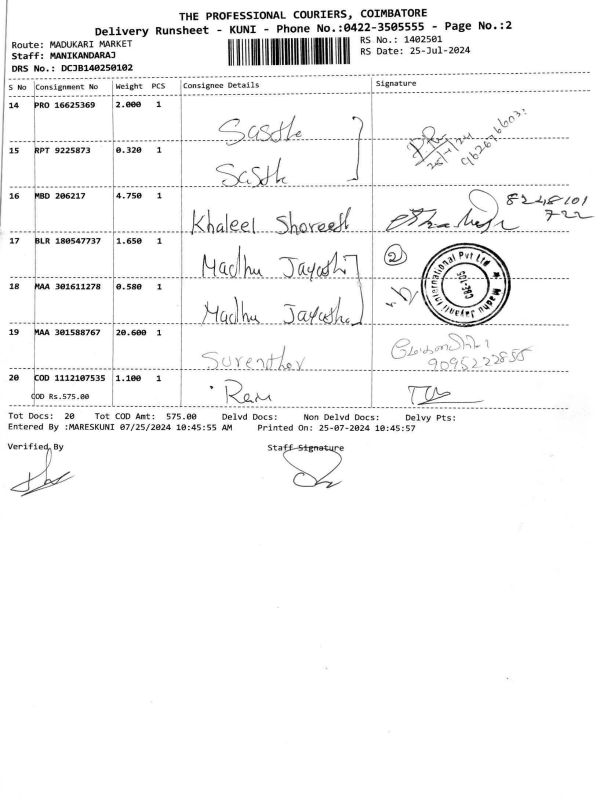 THE PROFESSIONAL COURIERS, COIMBATORE
Delivery Runsheet - KUNI - Phone No.:0422-3505555 - Page No.:2
Route: MADUKARI MARKET
RS No.: 1402501
Staff: MANIKANDARAJ
RS Date: 25-Jul-2024
DRS No.: DCJB140250102
S No Consignment No Weight PCS Consignee Details Signature
14 PRO 16625369 2.000 1
Sasthe
25/7/24
15 RPT 9225873 0.320 1
Sasth
16 MBD 206217 4.750 1
Khaleel 8248101
722
17 BLR 180547737 1.650 1
Madhu 2
Madhu Jayanti International Pvt Ltd
CBE-105
18 MAA 301611278 0.580 1
Madhu
19 MAA 301588767 20.600 1
Surendher 9095222855
20 COD 1112107535 1.100 1
COD Rs.575.00
Ram
Tot Docs: 20 Tot COD Amt: 575.00 Delvd Docs: Non Delvd Docs: Delvy Pts:
Entered By :MARESKUNI 07/25/2024 10:45:55 AM Printed On: 25-07-2024 10:45:57
Verified By Staff Signature